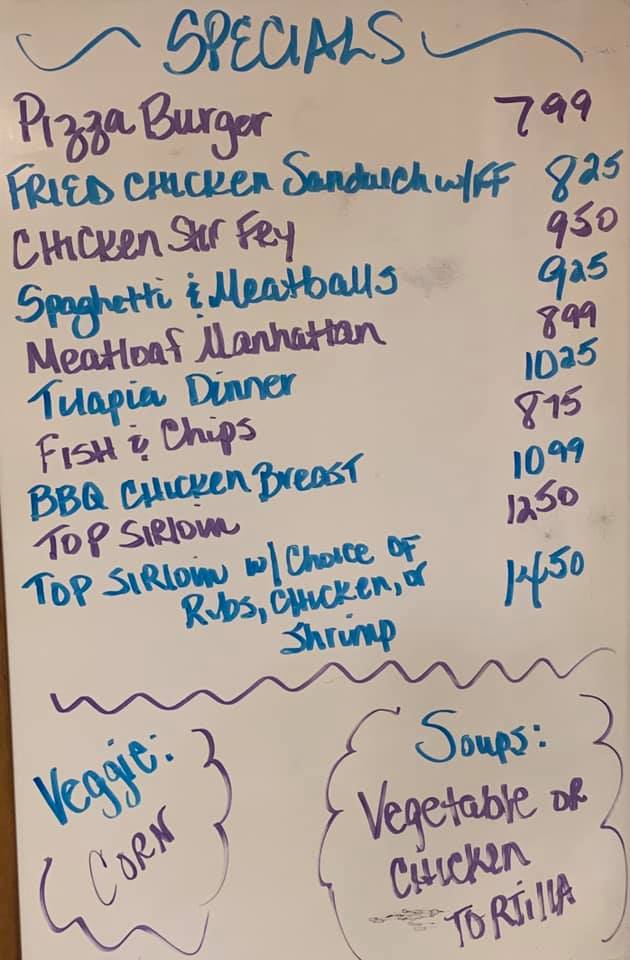 SPECIALS
Pizza Burger 799
FRIED CHICKEN Sandwich w/FF 825
CHICKEN Stir Fry 950
Spaghetti & Meatballs 925
Meatloaf Manhattan 899
Tilapia Dinner 1025
FISH & Chips 875
BBQ CHICKEN Breast 1099
TOP SIRLOIN 1250
TOP SIRLOIN w/ Choice OF 1450
Ribs, CHICKEN, or
Shrimp
Veggie:
CORN
Soups:
Vegetable OR
CHICKEN
TORTILLA